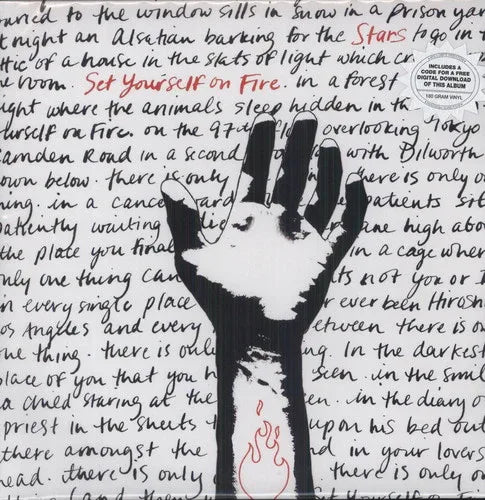 to the window sills in snow in a prison
at night an Alsatian barking for the Stars to go in
of a house in the slats of light which
the room. Set Yourself on Fire. in a forest
where the animals sleep hidden in
yourself on Fire. on the 97th overlooking Tokyo
Camden Road in a second with Dilworth
down below. there is only there is only
thing. in a cancer and patients
patiently waiting high
the place you in a cage where
only one thing can its not you or I
in every single place or ever been
Los Angeles and every between there is
one thing. there is only In the darkest
place of you that you seen. in the
a child staring at the in the diary
priest in the sheets upon his bed
there amongst the in your lovers
head. there is only there is only
INCLUDES A
CODE FOR A FREE
DIGITAL DOWNLOAD
OF THIS ALBUM
180 GRAM VINYL